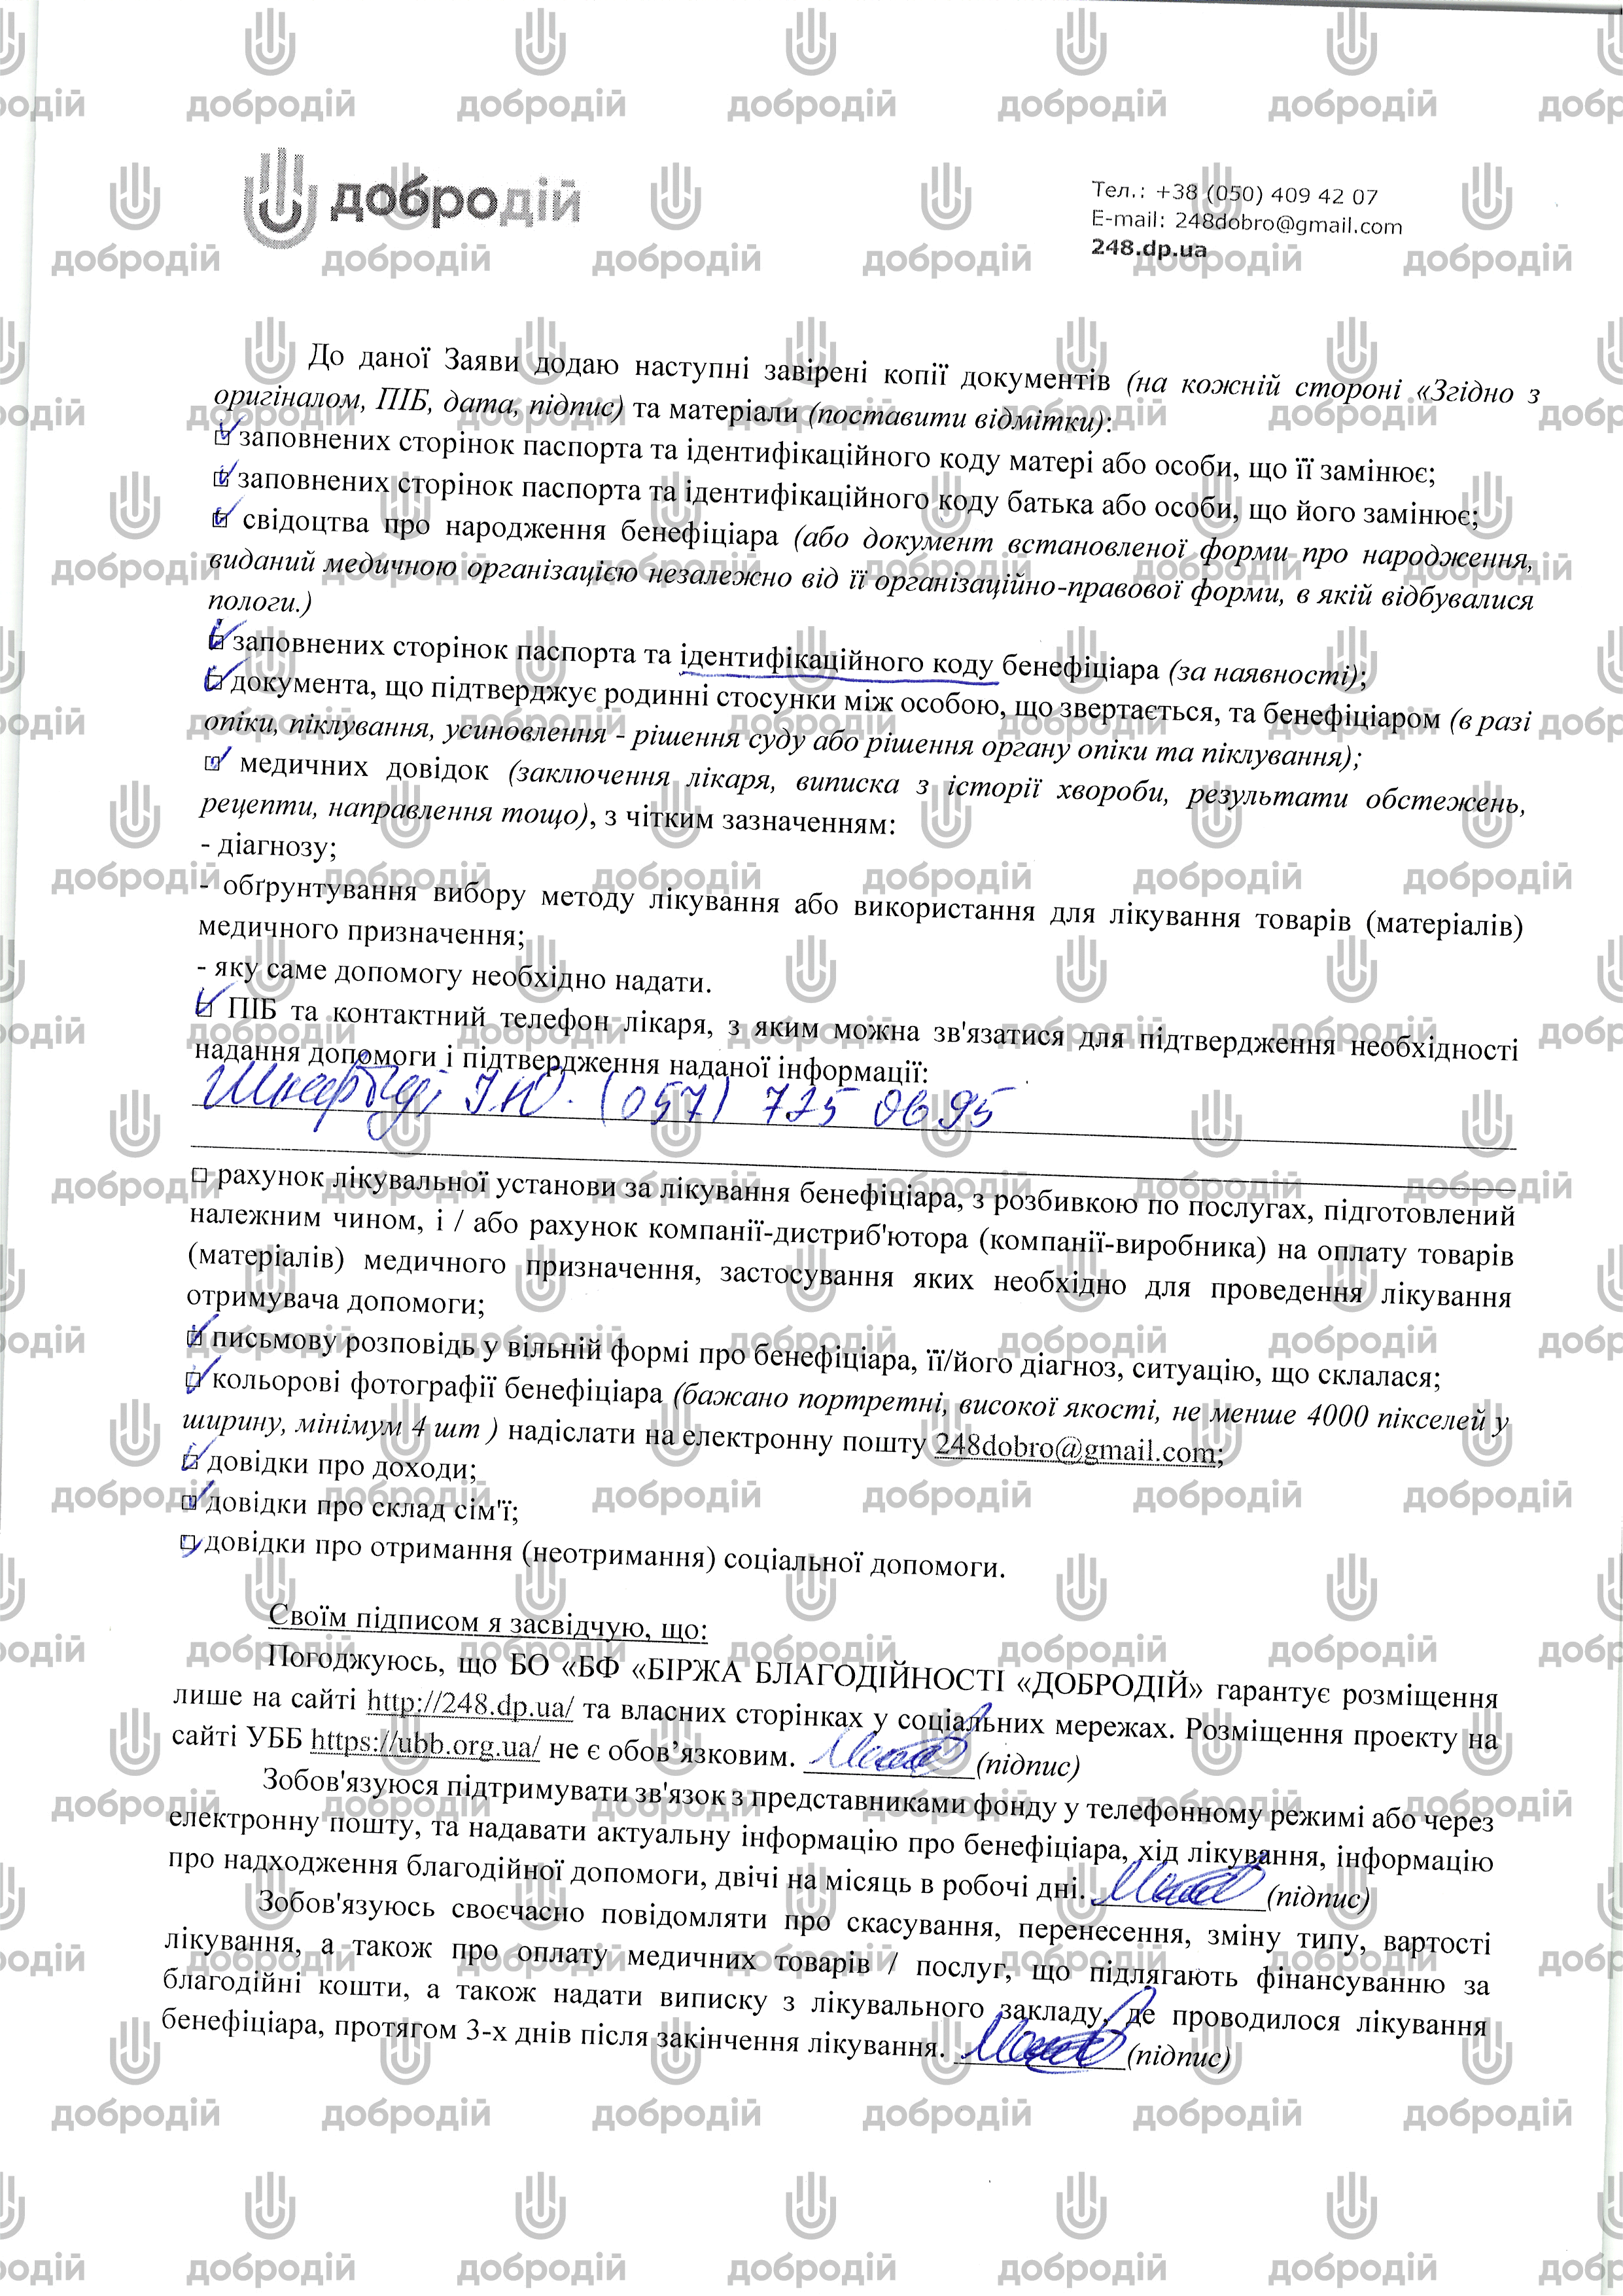 добродій
Тел.: +38 (050) 409 42 07
E-mail: 248dobro@gmail.com
248.dp.ua
До даної Заяви додаю наступні завірені копії документів (на кожній стороні «Згідно з
оригіналом, ПІБ, дата, підпис) та матеріали (поставити відмітки):
☑ заповнених сторінок паспорта та ідентифікаційного коду матері або особи, що її замінює;
☑ заповнених сторінок паспорта та ідентифікаційного коду батька або особи, що його замінює;
☑ свідоцтва про народження бенефіціара (або документ встановленої форми про народження,
виданий медичною організацією незалежно від її організаційно-правової форми, в якій відбувалися
пологи.)
☑ заповнених сторінок паспорта та ідентифікаційного коду бенефіціара (за наявності);
☑ документа, що підтверджує родинні стосунки між особою, що звертається, та бенефіціаром (в разі
опіки, піклування, усиновлення - рішення суду або рішення органу опіки та піклування);
☑ медичних довідок (заключення лікаря, виписка з історії хвороби, результати обстежень,
рецепти, направлення тощо), з чітким зазначенням:
- діагнозу;
- обґрунтування вибору методу лікування або використання для лікування товарів (матеріалів)
медичного призначення;
- яку саме допомогу необхідно надати.
☑ ПІБ та контактний телефон лікаря, з яким можна зв'язатися для підтвердження необхідності
надання допомоги і підтвердження наданої інформації:
(057) 725 06 95
☐ рахунок лікувальної установи за лікування бенефіціара, з розбивкою по послугах, підготовлений
належним чином, і / або рахунок компанії-дистриб'ютора (компанії-виробника) на оплату товарів
(матеріалів) медичного призначення, застосування яких необхідно для проведення лікування
отримувача допомоги;
☑ письмову розповідь у вільній формі про бенефіціара, її/його діагноз, ситуацію, що склалася;
☑ кольорові фотографії бенефіціара (бажано портретні, високої якості, не менше 4000 пікселей у
ширину, мінімум 4 шт ) надіслати на електронну пошту 248dobro@gmail.com;
☑ довідки про доходи;
☑ довідки про склад сім'ї;
☑ довідки про отримання (неотримання) соціальної допомоги.
Своїм підписом я засвідчую, що:
Погоджуюсь, що БО «БФ «БІРЖА БЛАГОДІЙНОСТІ «ДОБРОДІЙ» гарантує розміщення
лише на сайті http://248.dp.ua/ та власних сторінках у соціальних мережах. Розміщення проекту на
сайті УББ https://ubb.org.ua/ не є обов’язковим. (підпис)
Зобов'язуюся підтримувати зв'язок з представниками фонду у телефонному режимі або через
електронну пошту, та надавати актуальну інформацію про бенефіціара, хід лікування, інформацію
про надходження благодійної допомоги, двічі на місяць в робочі дні. (підпис)
Зобов'язуюсь своєчасно повідомляти про скасування, перенесення, зміну типу, вартості
лікування, а також про оплату медичних товарів / послуг, що підлягають фінансуванню за
благодійні кошти, а також надати виписку з лікувального закладу, де проводилося лікування
бенефіціара, протягом 3-х днів після закінчення лікування. (підпис)